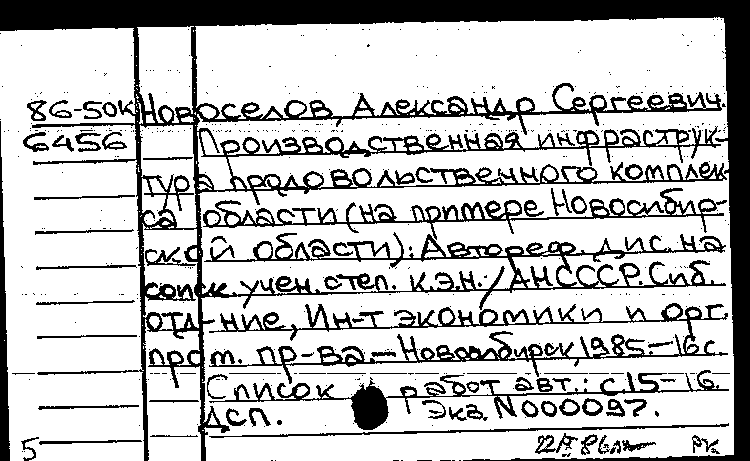 86-50к Новоселов, Александр Сергеевич.
6456 Производственная инфраструк-
тура продовольственного комплек-
са области (на примере Новосибир-
ской области): Автореф. дис. на
соиск. учен. степ. к.э.н. / АН СССР. Сиб.
отд-ние, Ин-т экономики и орг.
пром. пр-ва. — Новосибирск, 1985. — 16 с.
Список работ авт.: с 15-16.
Дсп. Экз. N000097.
5 РК